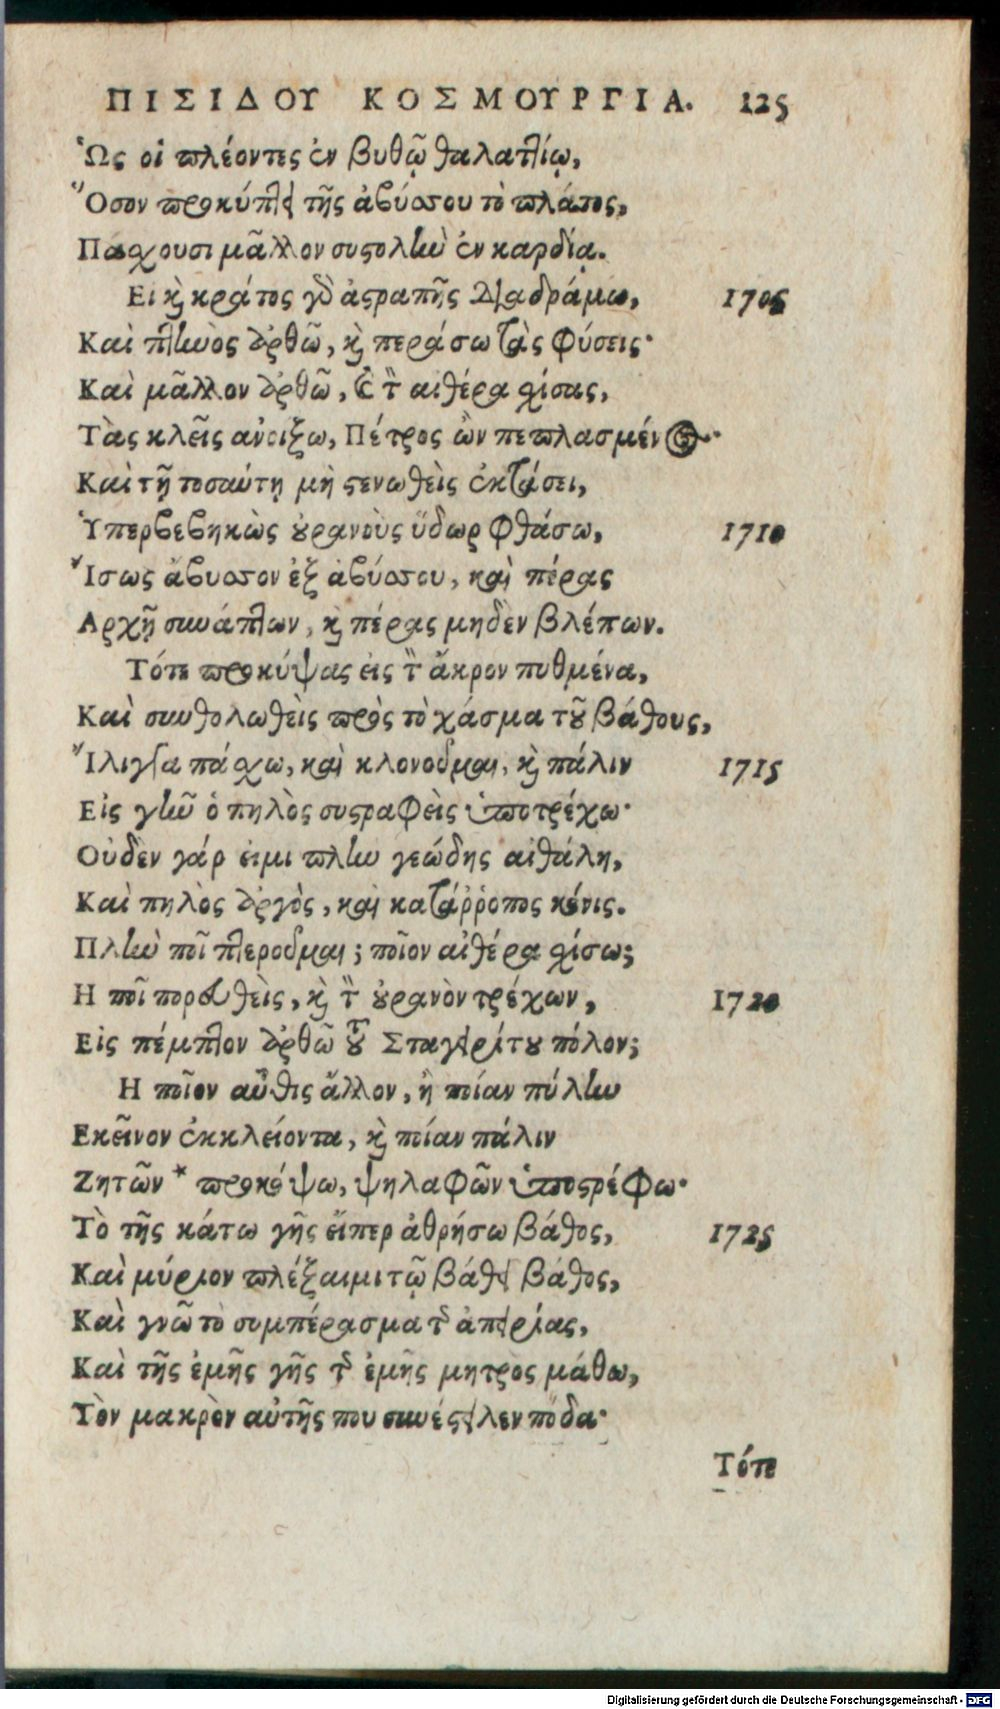 ΠΙΣΙΔΟΥ ΚΟΣΜΟΥΡΓΙΑ. 125
Ὡς οἱ πλέοντες ἐν βυθῷ θαλαττίῳ,
Ὅσον προκύπτει τῆς ἀβύσσου τὸ πλάτος,
Πάσχουσι μᾶλλον συστολὴν ἐν καρδίᾳ.
Εἰ καὶ κράτος γὰρ ἀστραπῆς διαδράμω, 1705
Καὶ πτηνὸς ἀρθῶ, καὶ περάσω τὰς φύσεις·
Καὶ μᾶλλον ἀρθῶ, καὶ τὸν αἰθέρα σχίσας,
Τὰς κλεῖς ἀνοίξω, Πέτρος ὢν πεπλασμένος·
Καὶ τῇ τοσαύτῃ μὴ στενωθεὶς ἐκτάσει,
Ὑπερβεβηκὼς οὐρανοὺς ὕδωρ φθάσω, 1710
Ἴσως ἄβυσσον ἐξ ἀβύσσου, καὶ πέρας
Αρχῇ συνάπτων, καὶ πέρας μηδὲν βλέπων.
Τότε προκύψας εἰς τὸν ἄκρον πυθμένα,
Καὶ συνθολωθεὶς πρὸς τὸ χάσμα τοῦ βάθους,
Ἴλιγγα πάσχω, καὶ κλονοῦμαι, καὶ πάλιν 1715
Εἰς γῆν ὁ πηλὸς συστραφεὶς ὑποτρέχω·
Οὐδὲν γάρ εἰμι πλὴν γεώδης αἰθάλη,
Καὶ πηλὸς ἀργὸς, καὶ κατάῤῥοπος κόνις.
Πλὴν ποῖ πτεροῦμαι; ποῖον αἰθέρα σχίσω;
Η ποῖ πορευθεὶς, καὶ τὸν οὐρανὸν τρέχων, 1720
Εἰς πέμπτον ἀρθῶ τοῦ Σταγειρίτου πόλον;
Η ποῖον αὖθις ἄλλον, ἢ ποίαν πύλην
Εκεῖνον ἐκκλείοντα, καὶ ποίαν πάλιν
Ζητῶν * προκόψω, ψηλαφῶν ὑποστρέφω·
Τὸ τῆς κάτω γῆς εἴπερ ἀθρήσω βάθος, 1725
Καὶ μύριον πλέξαιμι τῷ βάθει βάθος,
Καὶ γνῶ τὸ συμπέρασμα τῆς ἀπειρίας,
Καὶ τῆς ἐμῆς γῆς τῆς ἐμῆς μητρὸς μάθω,
Τὸν μακρὸν αὐτῆς που συνέστειλεν πόδα·
Τότε
Digitalisierung gefördert durch die Deutsche Forschungsgemeinschaft - DFG